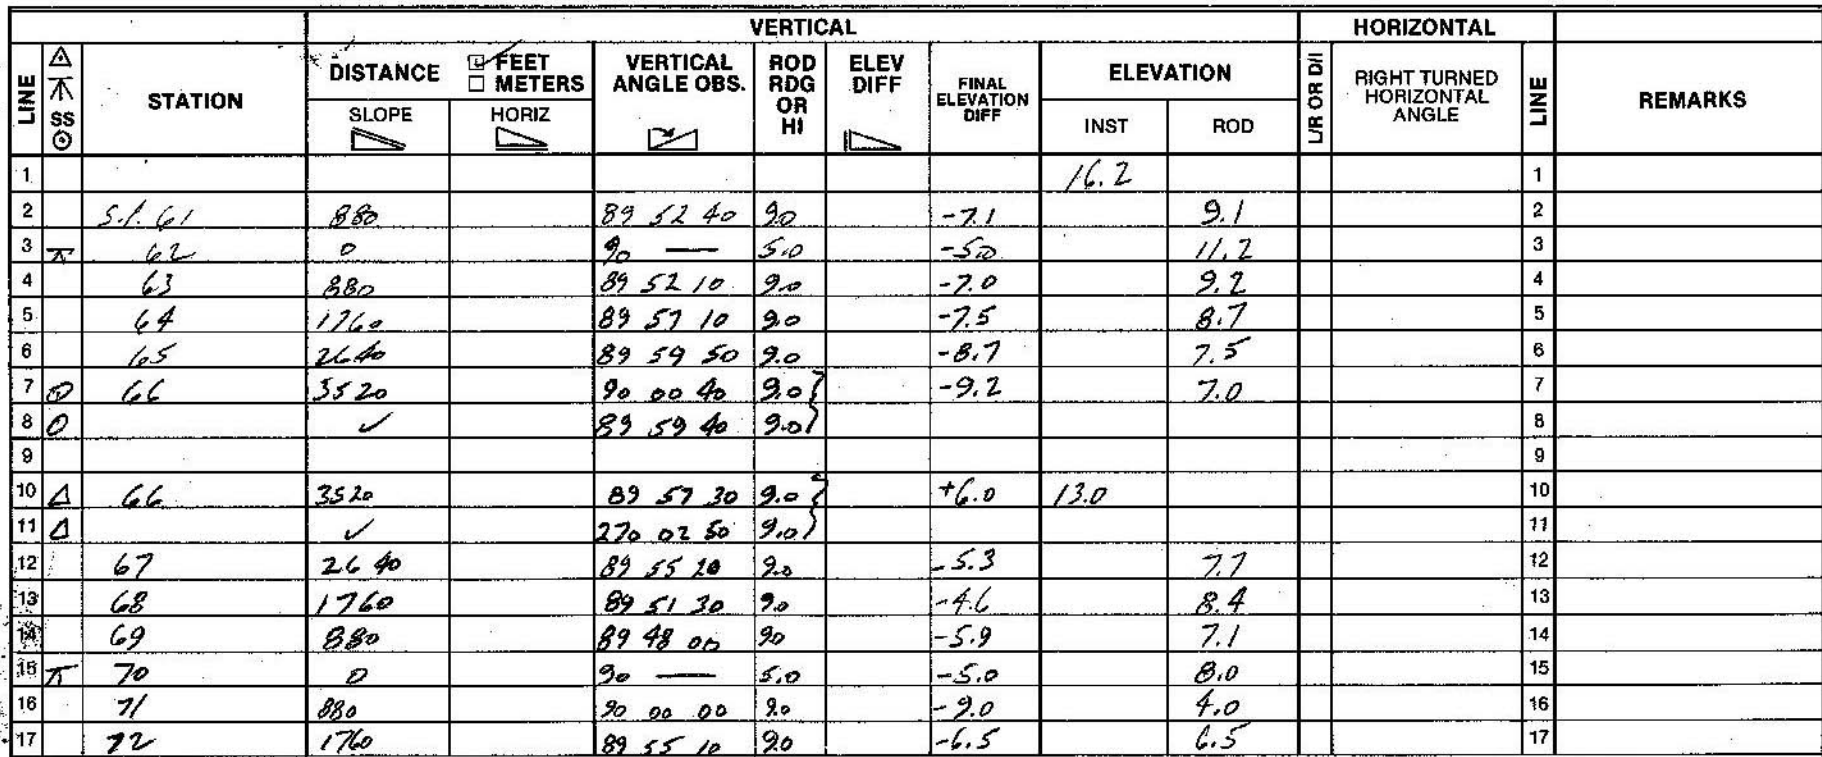 VERTICAL HORIZONTAL
LINE SS STATION DISTANCE FEET METERS VERTICAL ANGLE OBS. ROD RDG OR HI ELEV DIFF FINAL ELEVATION DIFF ELEVATION L/R OR D/I RIGHT TURNED HORIZONTAL ANGLE LINE REMARKS
SLOPE HORIZ INST ROD
1 16.2 1
2 S.P. 61 880 89 52 40 9.0 -7.1 9.1 2
3 62 0 90 — 5.0 -5.0 11.2 3
4 63 880 89 52 10 9.0 -7.0 9.2 4
5 64 1760 89 57 10 9.0 -7.5 8.7 5
6 65 2640 89 59 50 9.0 -8.7 7.5 6
7 66 3520 90 00 40 9.0 } -9.2 7.0 7
8 ✓ 89 59 40 9.0 } 8
9 9
10 △ 66 3520 89 57 30 9.0 } +6.0 13.0 10
11 △ ✓ 270 02 50 9.0 } 11
12 67 2640 89 55 20 9.0 -5.3 7.7 12
13 68 1760 89 51 30 9.0 -4.6 8.4 13
14 69 880 89 48 00 90 -5.9 7.1 14
15 70 0 90 — 5.0 -5.0 8.0 15
16 71 880 90 00 00 9.0 -9.0 4.0 16
17 72 1760 89 55 10 9.0 -6.5 6.5 17